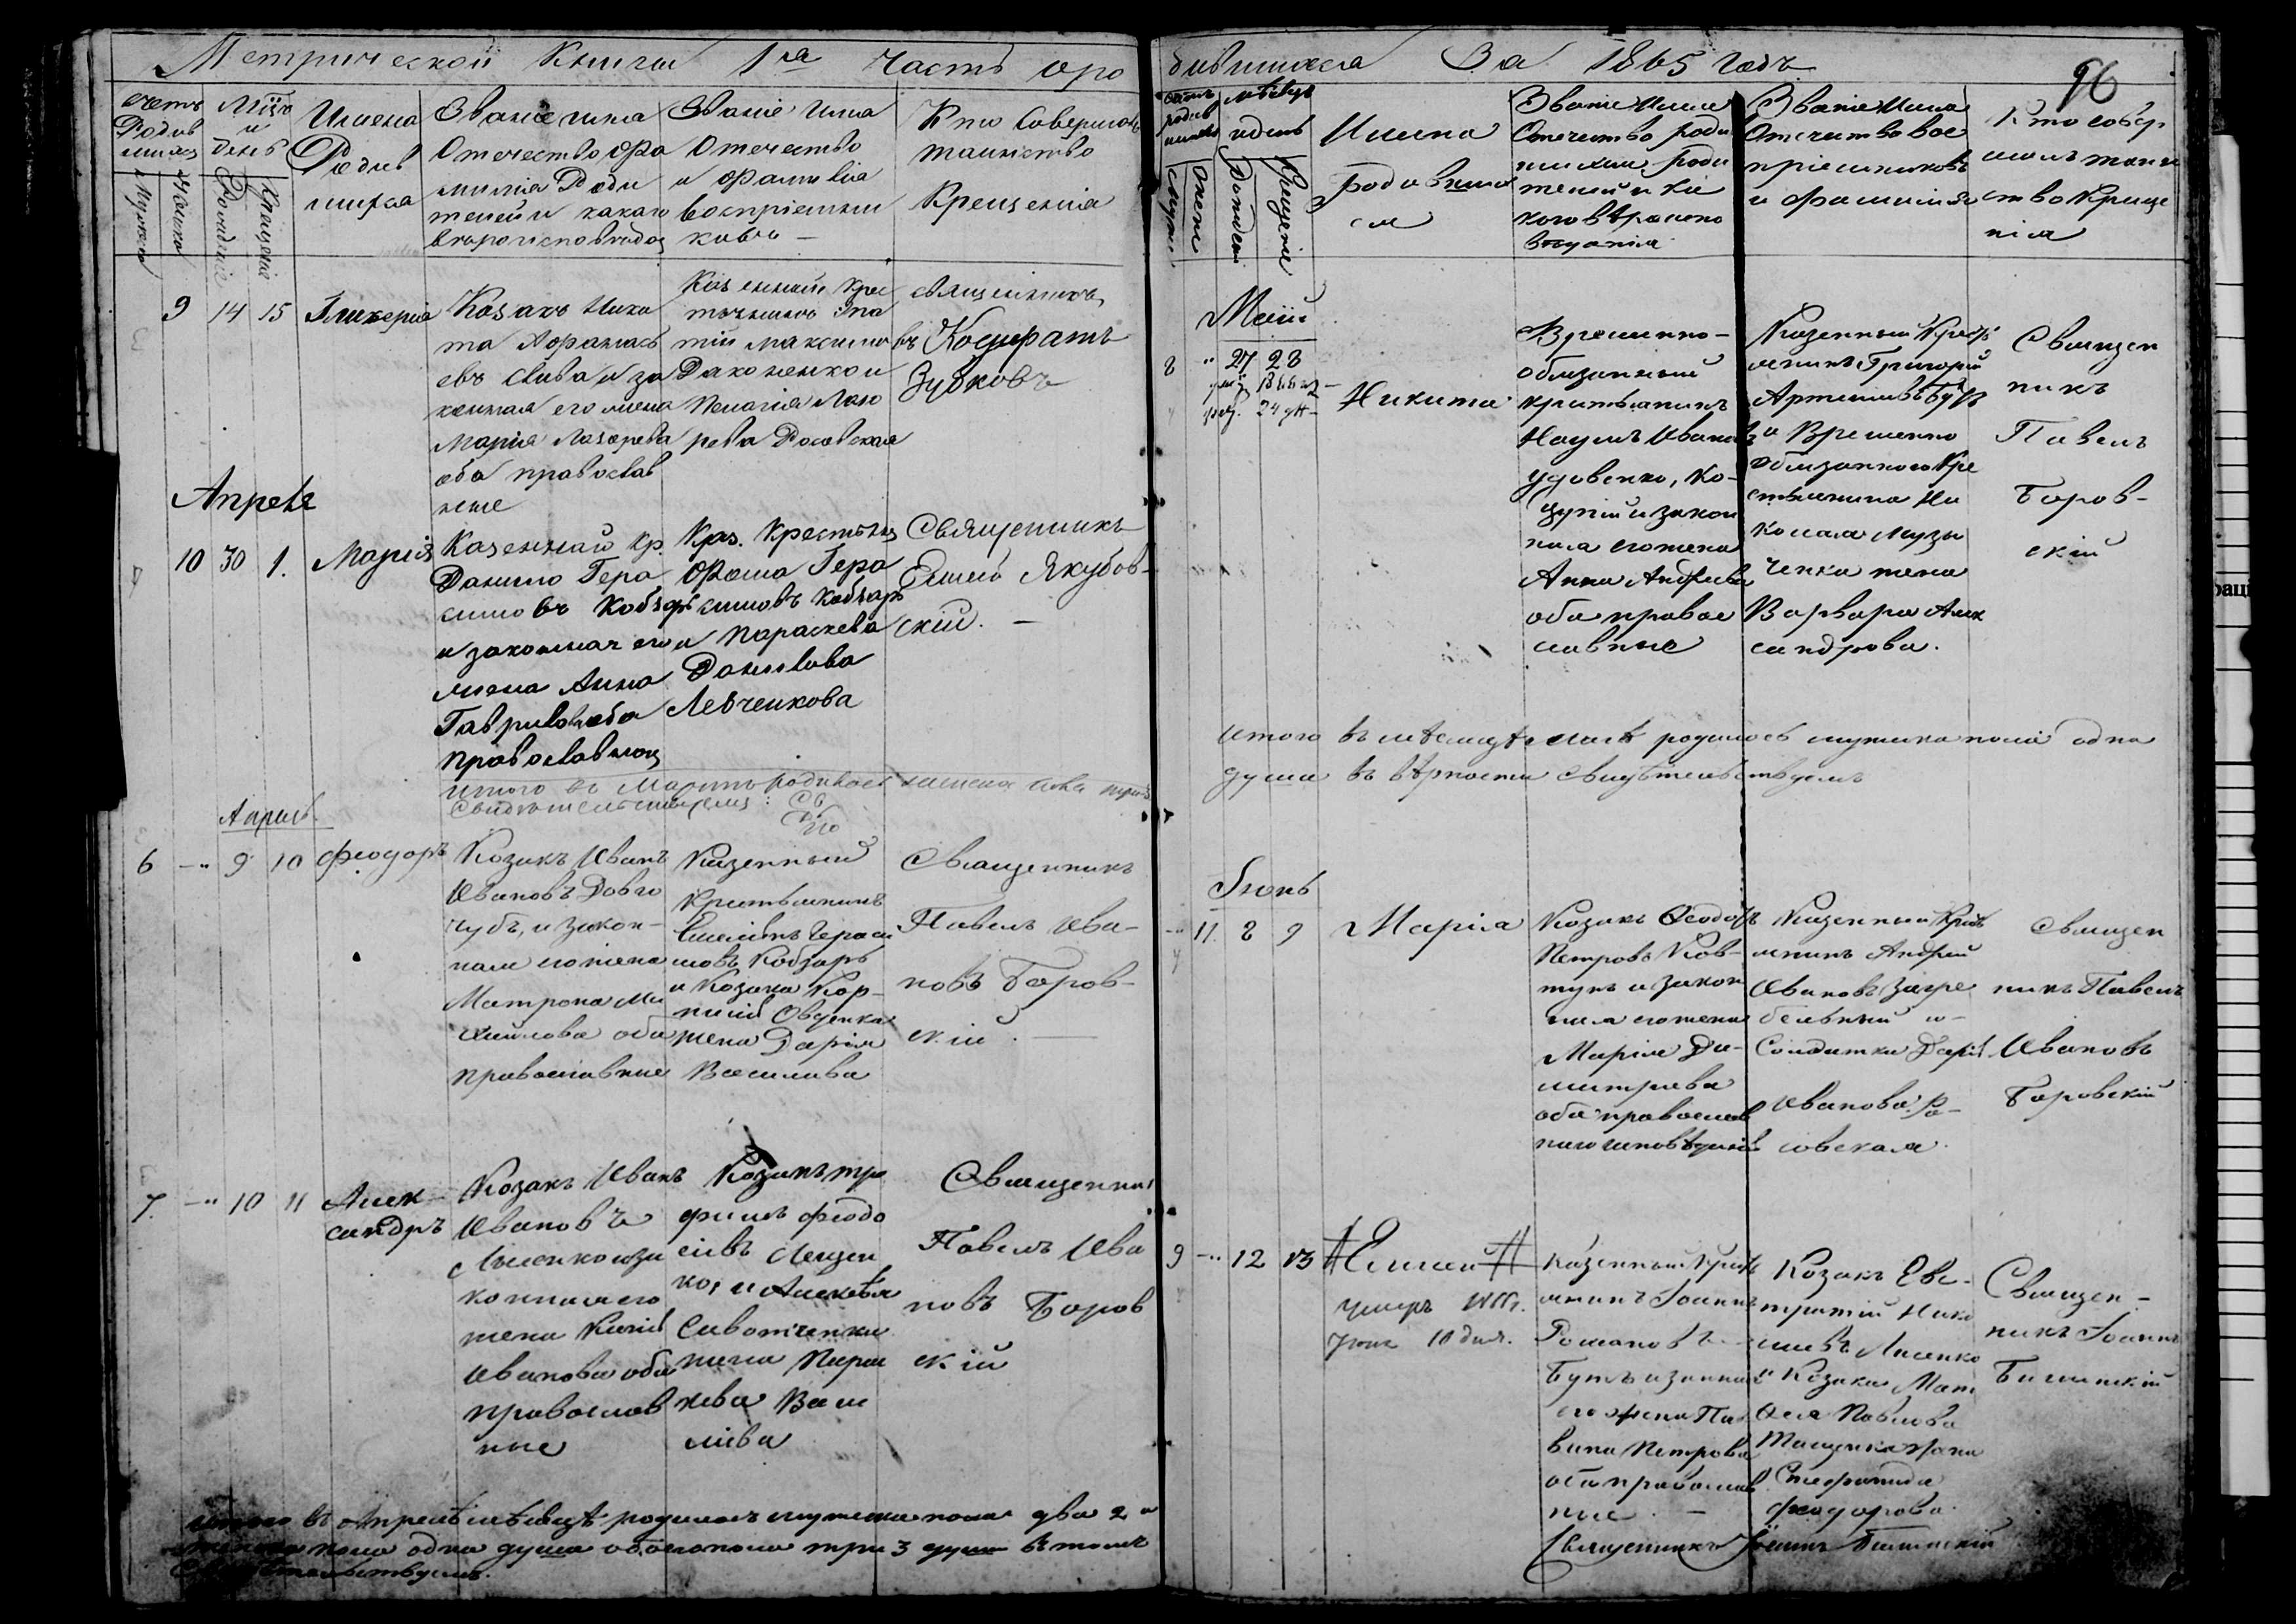 Метрической Книги 1ая Часть оро
счетъ
Родив
шихся
Мужеска
Женска
Мцъ
и
День
Рождения
Крещенiя
Имена
Родив
шихся
Званiе имя
Отечество Фа
милiя Роди
телей и какаго
вероисповедан
Званiе Имя
Отечество
и Фамилiя
воспрiемни
ковъ —
Кто Совершалъ
таинство
Крещенiя
9 14 15 Гликерiя
Козакъ Ники
та Афанась
евъ Слива и за
конная его жена
Марiя Лазарева
оба православ
ные
Казенный Крес
тьянинъ Игна
тiй Максимовъ
Дахоненко и
Пелагiя Лаза
рева Росовская
священникъ
Кодратъ
Зубковъ
Апреля
10 30 1. Марiя
Казенный кр.
Данило Гера
симовъ Кобзарь
и законная его
жена Анна
Гаврилова оба
православные
Каз. Крестьян.
Фома Гера
симовъ Кобзарь
и Параскева
Данилова
Левченкова
Священникъ
Якубов-
скiй. —
итого въ Марте родилось женска пола
Свидетельствуемъ: Св
Апрель
6 —" 9 10 Феодоръ
Козакъ Иванъ
Ивановъ Довго
чубъ, и закон-
ная его жена
Матрона Ми
хайлова оба
православные
Казенный
Крестьянинъ
Гераси
мовъ Кобзарь
и Козака Кор-
нилiя Овденка
жена Дарiя
Васильева
Священникъ
Павелъ Ива-
новъ Боров-
скiй. —
7. —" 10 11 Алек-
сандръ
Козакъ Иванъ
Ивановъ
Лысенко и за
конная его
жена
Иванова оба
православ
ные
Козакъ Тро
фимъ Феодо
сiевъ Лещен
ко, и Алексея
Сивотченка
жена Парас
кева Васи
лiева
Священникъ
Павелъ Ива
новъ Боров
скiй
Итого въ Апреле месяце родилось мужеска пола два 2 и
женска пола одна душа обоего пола три 3 души въ томъ
Свидетельствуемъ.
дившихся За 1865 Годъ
96
счетъ
родив
шихся
мужес.
женс
месяцъ
и день
Рожден
Крещенiе
Имена
родивших
ся
Званiе Имя
Отечество роди
телей и ка
кого вероиспо
веданiя
Званiе Имя
Отечество вос
прiемниковъ
и фамилiя
Кто совер
шалъ таин
ство Креще
нiя
Май
8 " 27 28
Никита
Временно-
обязанный
крестьянинъ
Наумъ Ивановъ
Удовенко, Ко-
и закон
ная его жена
Анна Андреева
оба право
славные
Казенный Крес
тьянинъ Григорiй
Артемiевъ Бутъ
и Временно
обязанного Кре
стьянина Ни
колая Музы
ченка жена
Варвара Алек
сандрова.
Священ
никъ
Павелъ
Боров-
скiй
Итого въ месяце мае родилось мужска пола одна
душа въ верности свидетельствуемъ
Iюнь
—" 11. 8 9 Марiя
Козакъ Феодоръ
Петровъ Ков-
тунъ и закон
ная его жена
Марiя Ди-
митрiева
оба православ
наго исповеданiя
Казенный Крес
тьянинъ Андрей
Ивановъ Загре
бельный и-
Солдатка Дарiя
Иванова Ро-
совская.
Священ
никъ Павелъ
Ивановъ
Боровскiй
9 —" 12 13 Елисей
умеръ 1865.
iюня 18 дня.
Казенный Крес
тьянинъ Iоаннъ
Романовъ
Бутъ и законная
его жена Па
влина Петрова
оба православ
ные. —
Козакъ Евс-
тратiй Нико
лаевъ Лысенко
и Козака Мат
фея Павлова
Тищенка жена
Стефанида
Феодорова.
Священ-
никъ Iоаннъ
Билинскiй
Священникъ Iоаннъ Билинскiй